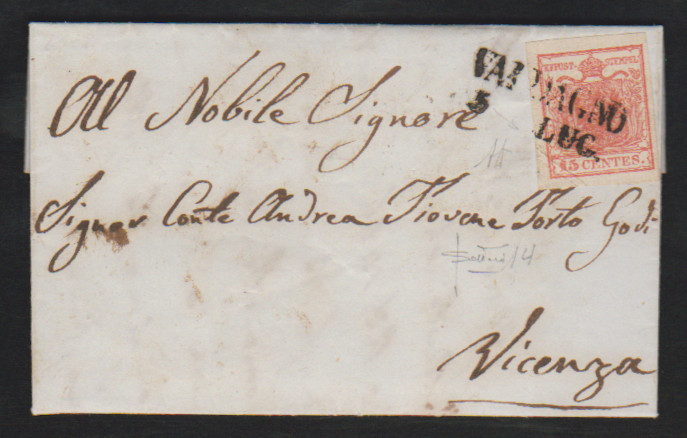 Al Nobile Signore
Signor Conte Andrea Piovene Porto Godi
Vicenza
KKPOST-STEMPEL
15 CENTES.
5 LUG.